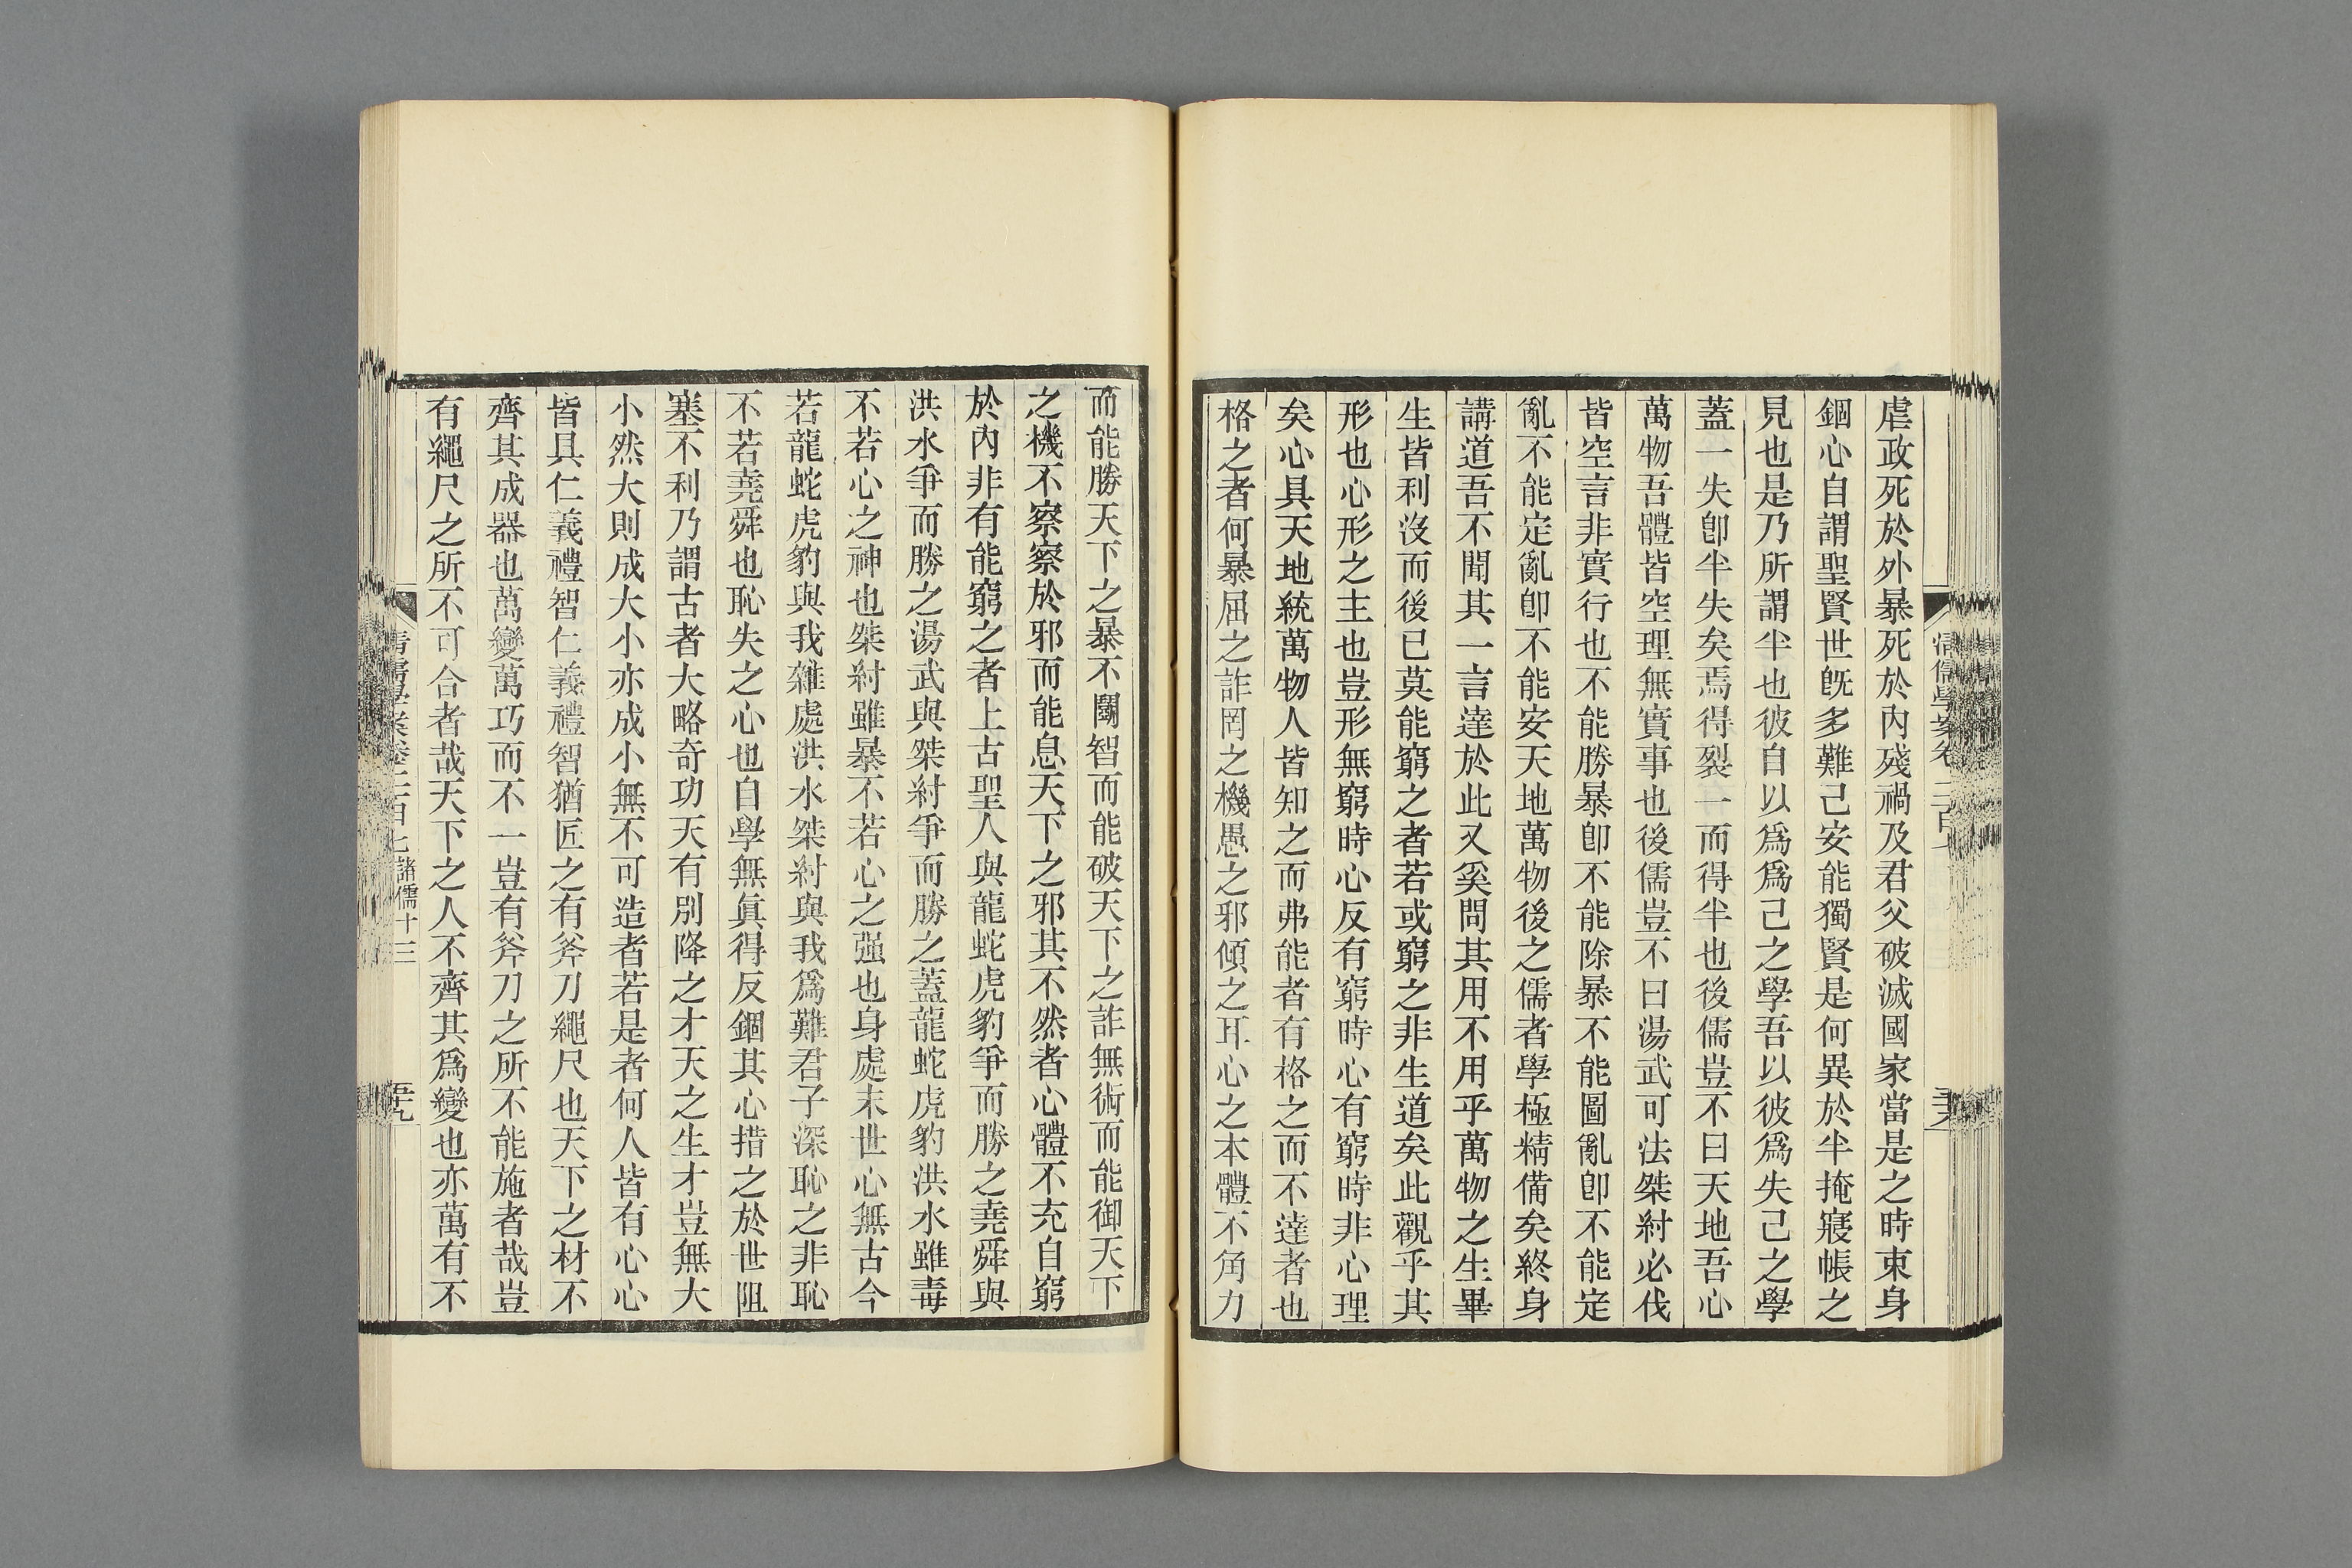 虐政死於外暴死於內殘禍及君父破滅國家當是之時束身
錮心自謂聖賢世旣多難己安能獨賢是何異於半掩寢帳之
見也是乃所謂半也彼自以爲爲己之學吾以彼爲失己之學
蓋一失卽半失矣焉得裂一而得半也後儒豈不曰天地吾心
萬物吾體皆空理無實事也後儒豈不曰湯武可法桀紂必伐
皆空言非實行也不能勝暴卽不能除暴不能圖亂卽不能定
亂不能定亂卽不能安天地萬物後之儒者學極精備矣終身
講道吾不聞其一言達於此又奚問其用不用乎萬物之生畢
生皆利沒而後已莫能窮之者若或窮之非生道矣此觀乎其
形也心形之主也豈形無窮時心反有窮時心有窮時非心理
矣心具天地統萬物人皆知之而弗能者有格之而不達者也
格之者何暴屈之詐罔之機愚之邪傾之耳心之本體不角力
清儒學案卷二百七
而能勝天下之暴不鬭智而能破天下之詐無術而能御天下
之機不察察於邪而能息天下之邪其不然者心體不充自窮
於內非有能窮之者上古聖人與龍蛇虎豹爭而勝之堯舜與
洪水爭而勝之湯武與桀紂爭而勝之蓋龍蛇虎豹洪水雖毒
不若心之神也桀紂雖暴不若心之强也身處末世心無古今
若龍蛇虎豹與我雜處洪水桀紂與我爲難君子深恥之非恥
不若堯舜也恥失之心也自學無眞得反錮其心措之於世阻
塞不利乃謂古者大略奇功天有別降之才天之生才豈無大
小然大則成大小亦成小無不可造者若是者何人皆有心心
皆具仁義禮智仁義禮智猶匠之有斧刀繩尺也天下之材不
齊其成器也萬變萬巧而不一豈有斧刀之所不能施者哉豈
有繩尺之所不可合者哉天下之人不齊其爲變也亦萬有不
清儒學案卷二百七諸儒十三